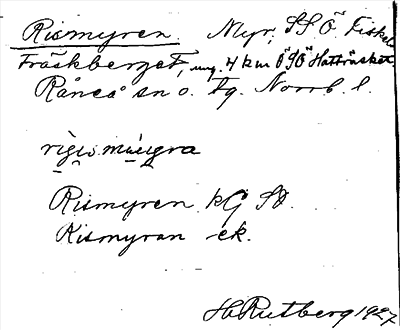 Rismyren. Myr, SSÖ Fiskel
Träskberget, ung. 4 km ÖSÖ Hatträsket.
Råneå sn o. tg. Norrb. l.
Rismyren kG SO.
Rismyran ek.
H Rutberg 1927